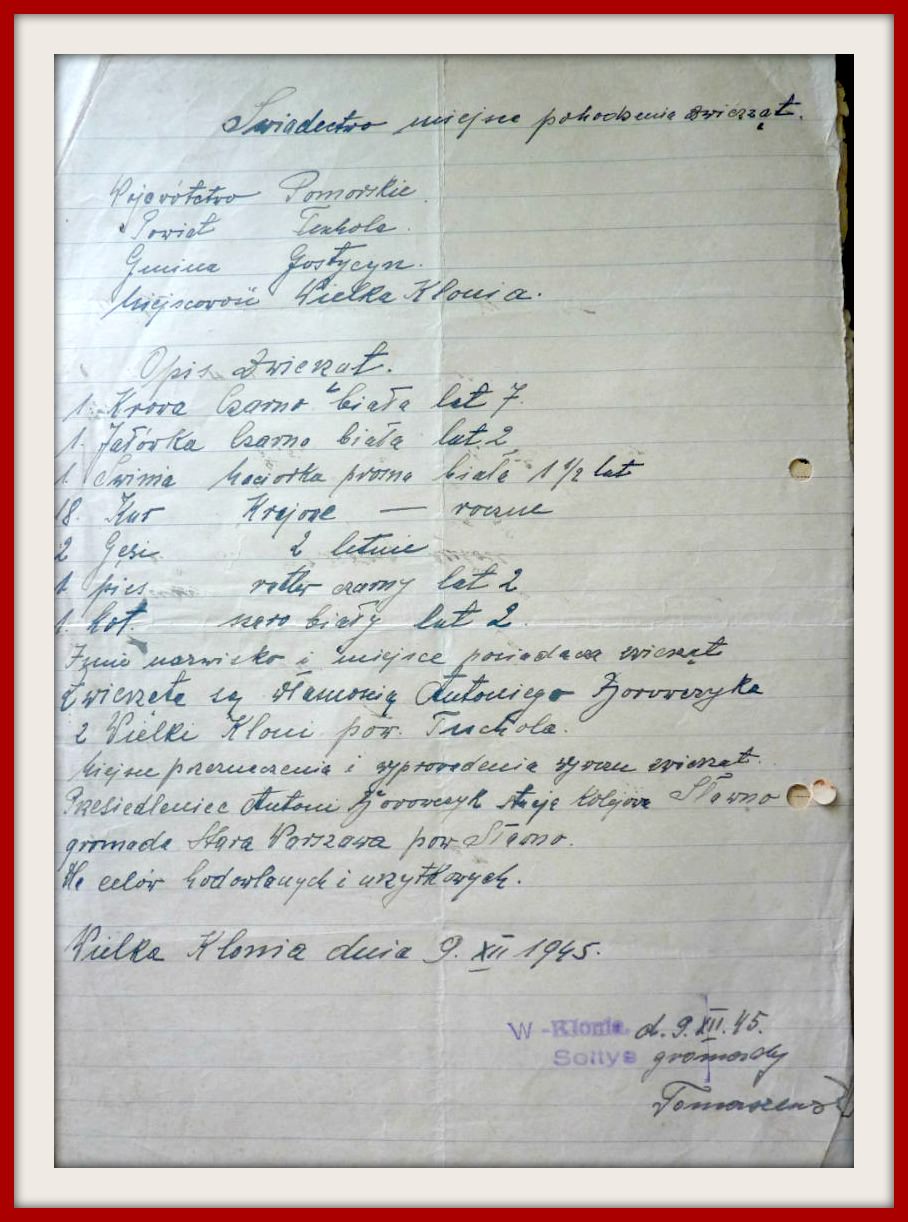 Swiadectwo miejsce pohodzenia zwierząt.
Wojewótctwo Pomorskie
Powiat Tuchola.
Gmina Gostycyn.
Miejscowość Wielka Klonia.
Opis Zwierzat.
1. Krova Czarno biała lat 7.
1. Jałówka Czarno biała lat 2
1 Świnia Maciorka prosna biała 1 1/2 lat
18. Kur Krajove — roczne
2 Gęsi 2 letnie
1. pies ratler czarny lat 2
1. kot. szaro biały lat 2.
Imie nazwisko i miejsce posiadacza zwierząt
Zwierzęta są własnonią Antoniego
z Wielki Kloni pow. Tuchola.
Miejsce przeznaczenia i wyprovadenia wywzu zwierzat.
Przesiedleniec Antoni stacja Kolejova Sławno
gromada Stara Warszawa pow. Sławno.
celów hodowlanych i urzytkowych.
Wielka Klonia dnia 9. XII 1945.
W-Klonia, d. 9. XII. 45.
Sołtys gromady